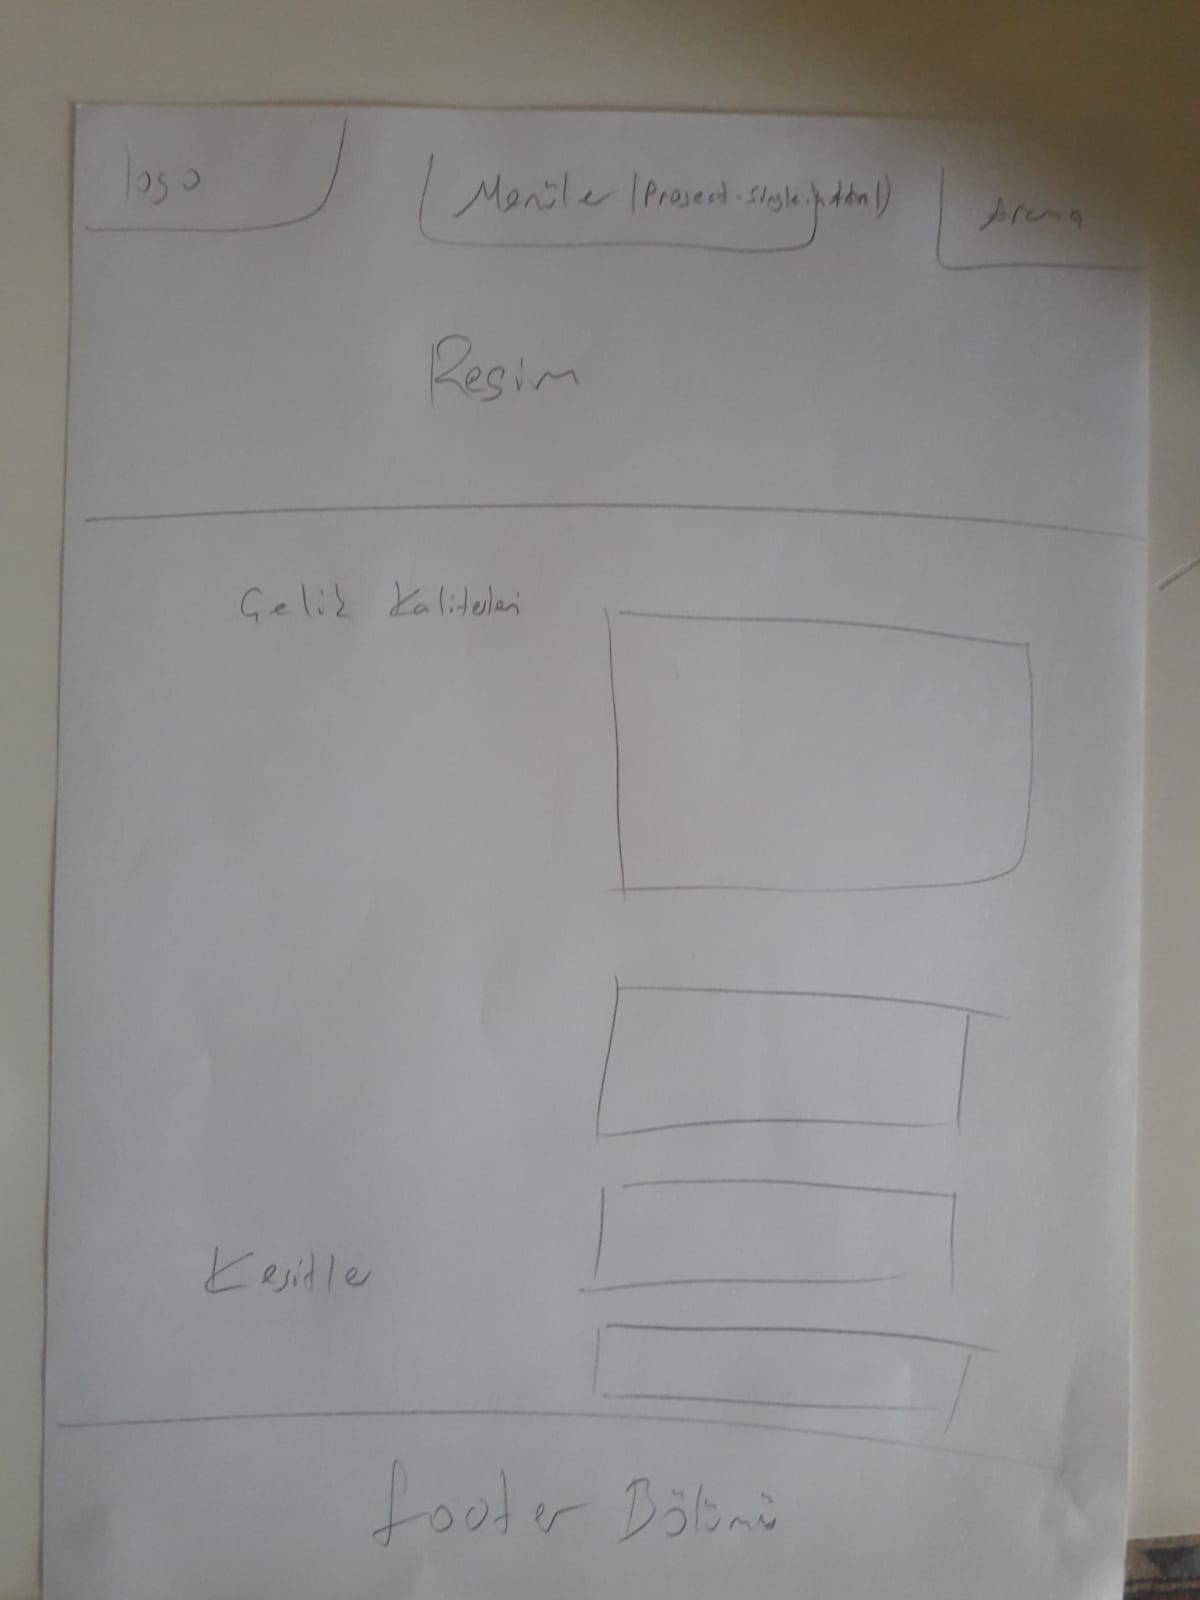 logo
Menüler (Project-Single.html)
Arama
Resim
Çelik Kaliteleri
Kesitler
footer Bölümü